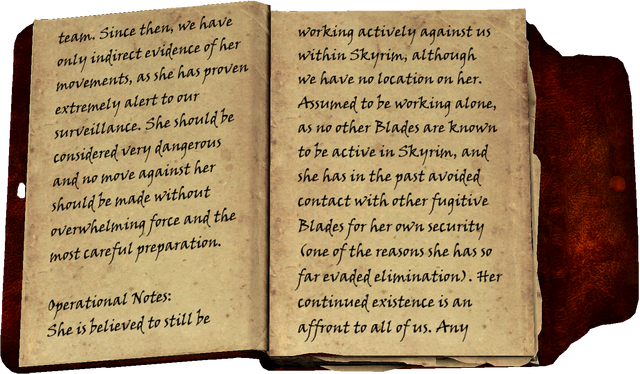 team. Since then, we have
only indirect evidence of her
movements, as she has proven
extremely alert to our
surveillance. She should be
considered very dangerous
and no move against her
should be made without
overwhelming force and the
most careful preparation.
Operational Notes:
She is believed to still be
working actively against us
within Skyrim, although
we have no location on her.
Assumed to be working alone,
as no other Blades are known
to be active in Skyrim, and
she has in the past avoided
contact with other fugitive
Blades for her own security
(one of the reasons she has so
far evaded elimination). Her
continued existence is an
affront to all of us. Any